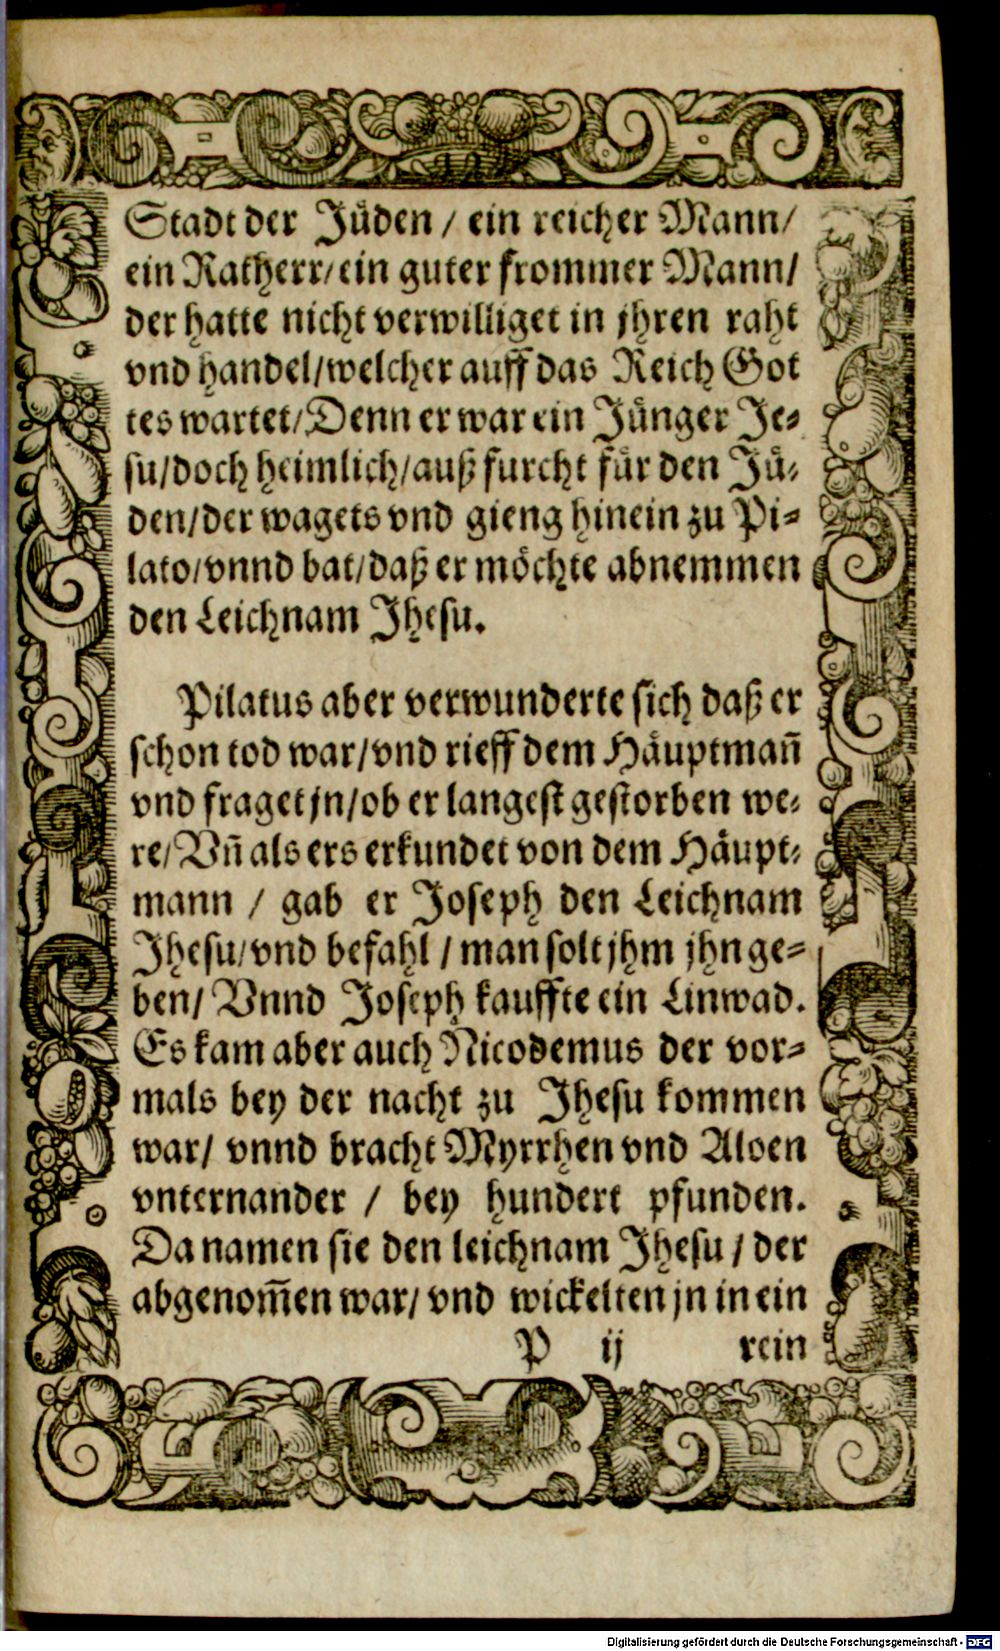 Stadt der Jüden / ein reicher Mann/
ein Ratherr/ein guter frommer Mann/
der hatte nicht verwilliget in jhren raht
vnd handel/welcher auff das Reich Got
tes wartet/Denn er war ein Jünger Je-
su/doch heimlich/auß furcht für den Jü-
den/der wagets vnd gieng hinein zu Pi-
lato/vnnd bat/daß er möchte abnemmen
den Leichnam Jhesu.
Pilatus aber verwunderte sich daß er
schon tod war/vnd rieff dem Häuptmañ
vnd fraget jn/ob er langest gestorben we-
re/Vñ als ers erkundet von dem Häupt-
mann / gab er Joseph den Leichnam
Jhesu/vnd befahl / man solt jhm jhn ge-
ben/ Vnnd Joseph kauffte ein Linwad.
Es kam aber auch Nicodemus der vor-
mals bey der nacht zu Jhesu kommen
war/ vnnd bracht Myrrhen vnd Aloen
vnternander / bey hundert pfunden.
Da namen sie den leichnam Jhesu / der
abgenom̃en war/ vnd wickelten jn in ein
P ij rein
Digitalisierung gefördert durch die Deutsche Forschungsgemeinschaft - DFG